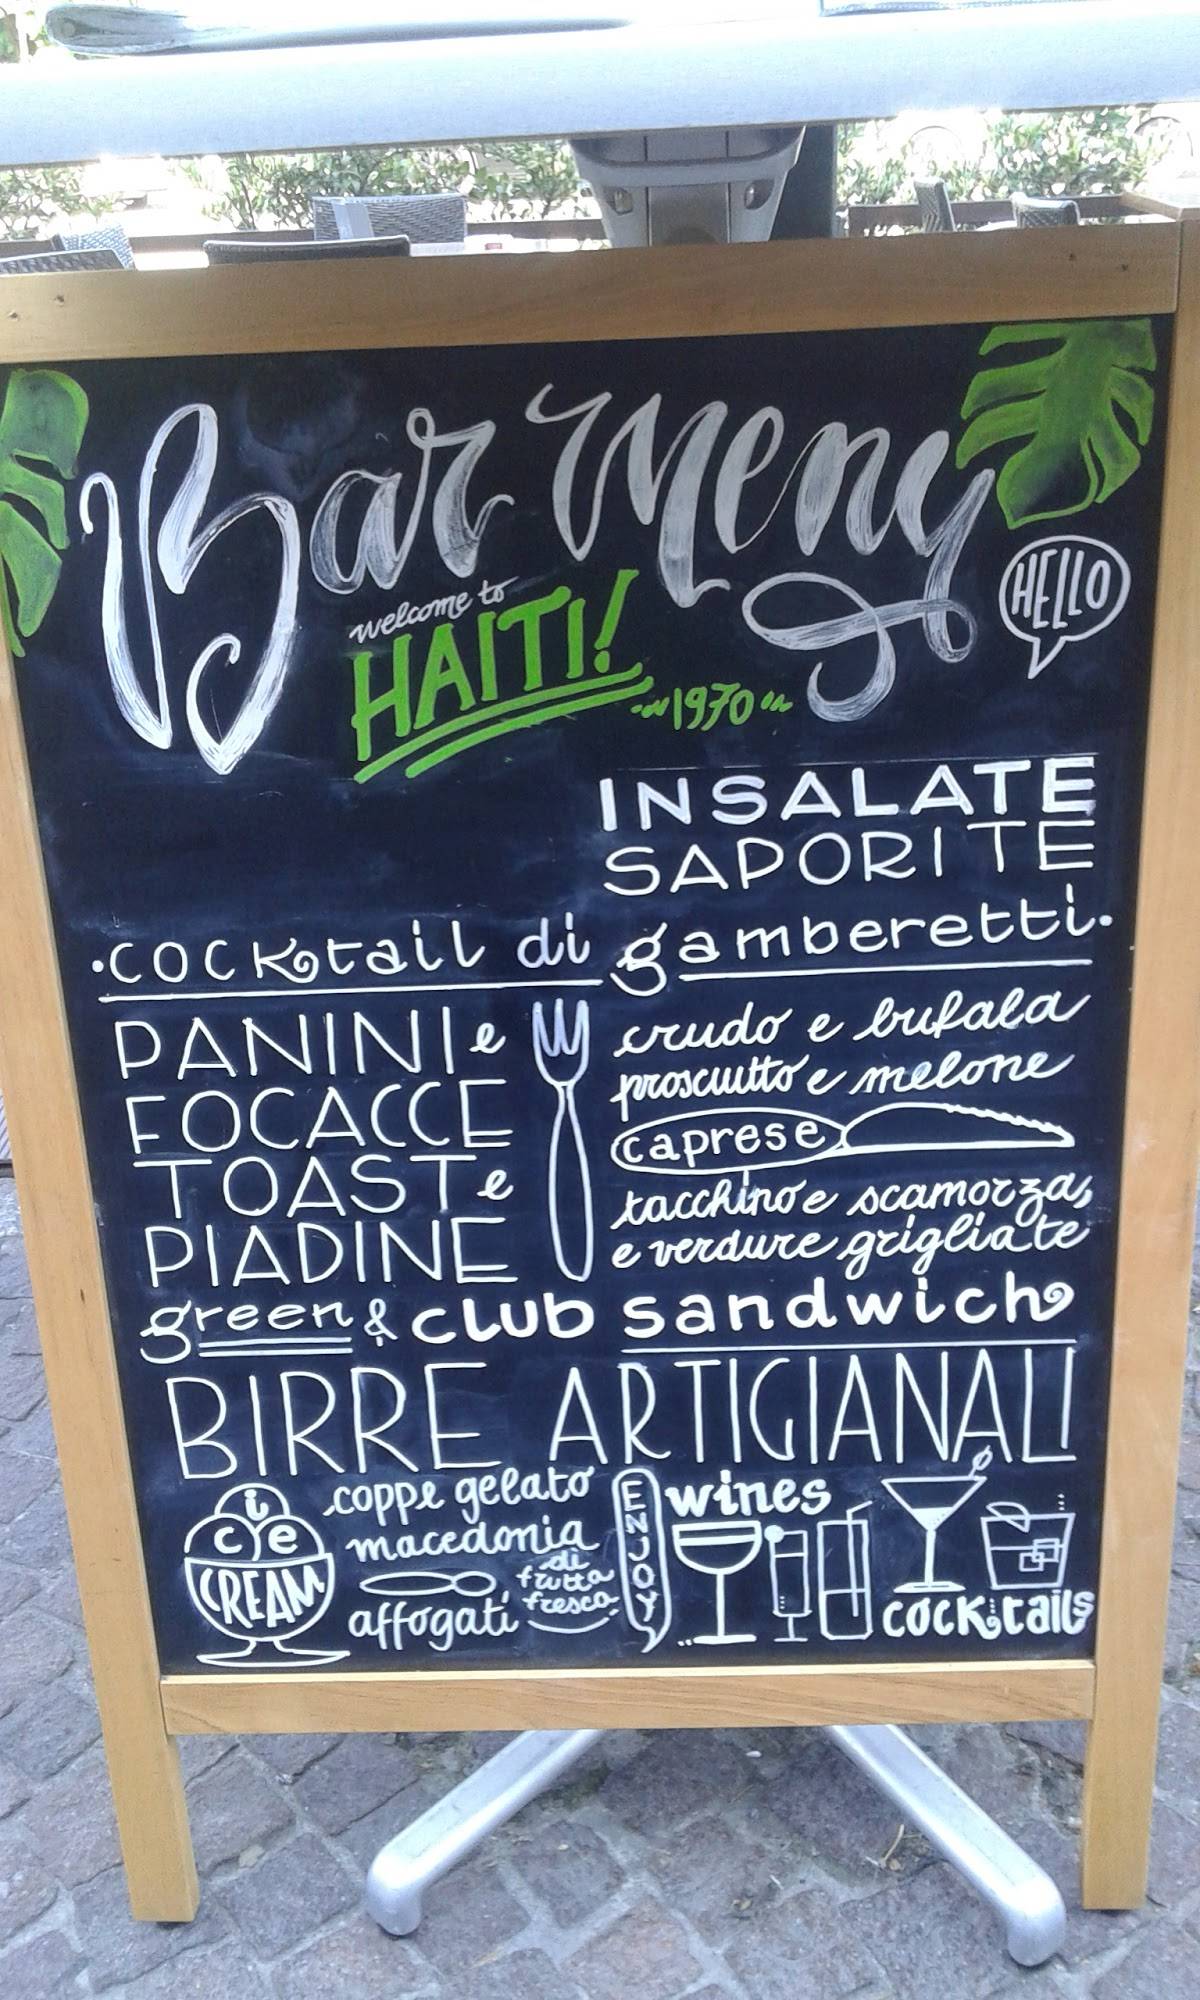 Bar Menu
HELLO
welcome to
HAITI!
1970
INSALATE
SAPORITE
•cocktail di gamberetti•
PANINI e
FOCACCE
TOAST e
PIADINE
crudo e bufala
prosciutto e melone
caprese
tacchino e scamorza,
e verdure grigliate
green & club sandwich
BIRRE ARTIGIANALI
ice
CREAM
coppe gelato
macedonia
di
frutta
fresca
affogati
ENJOY
wines
cocktails